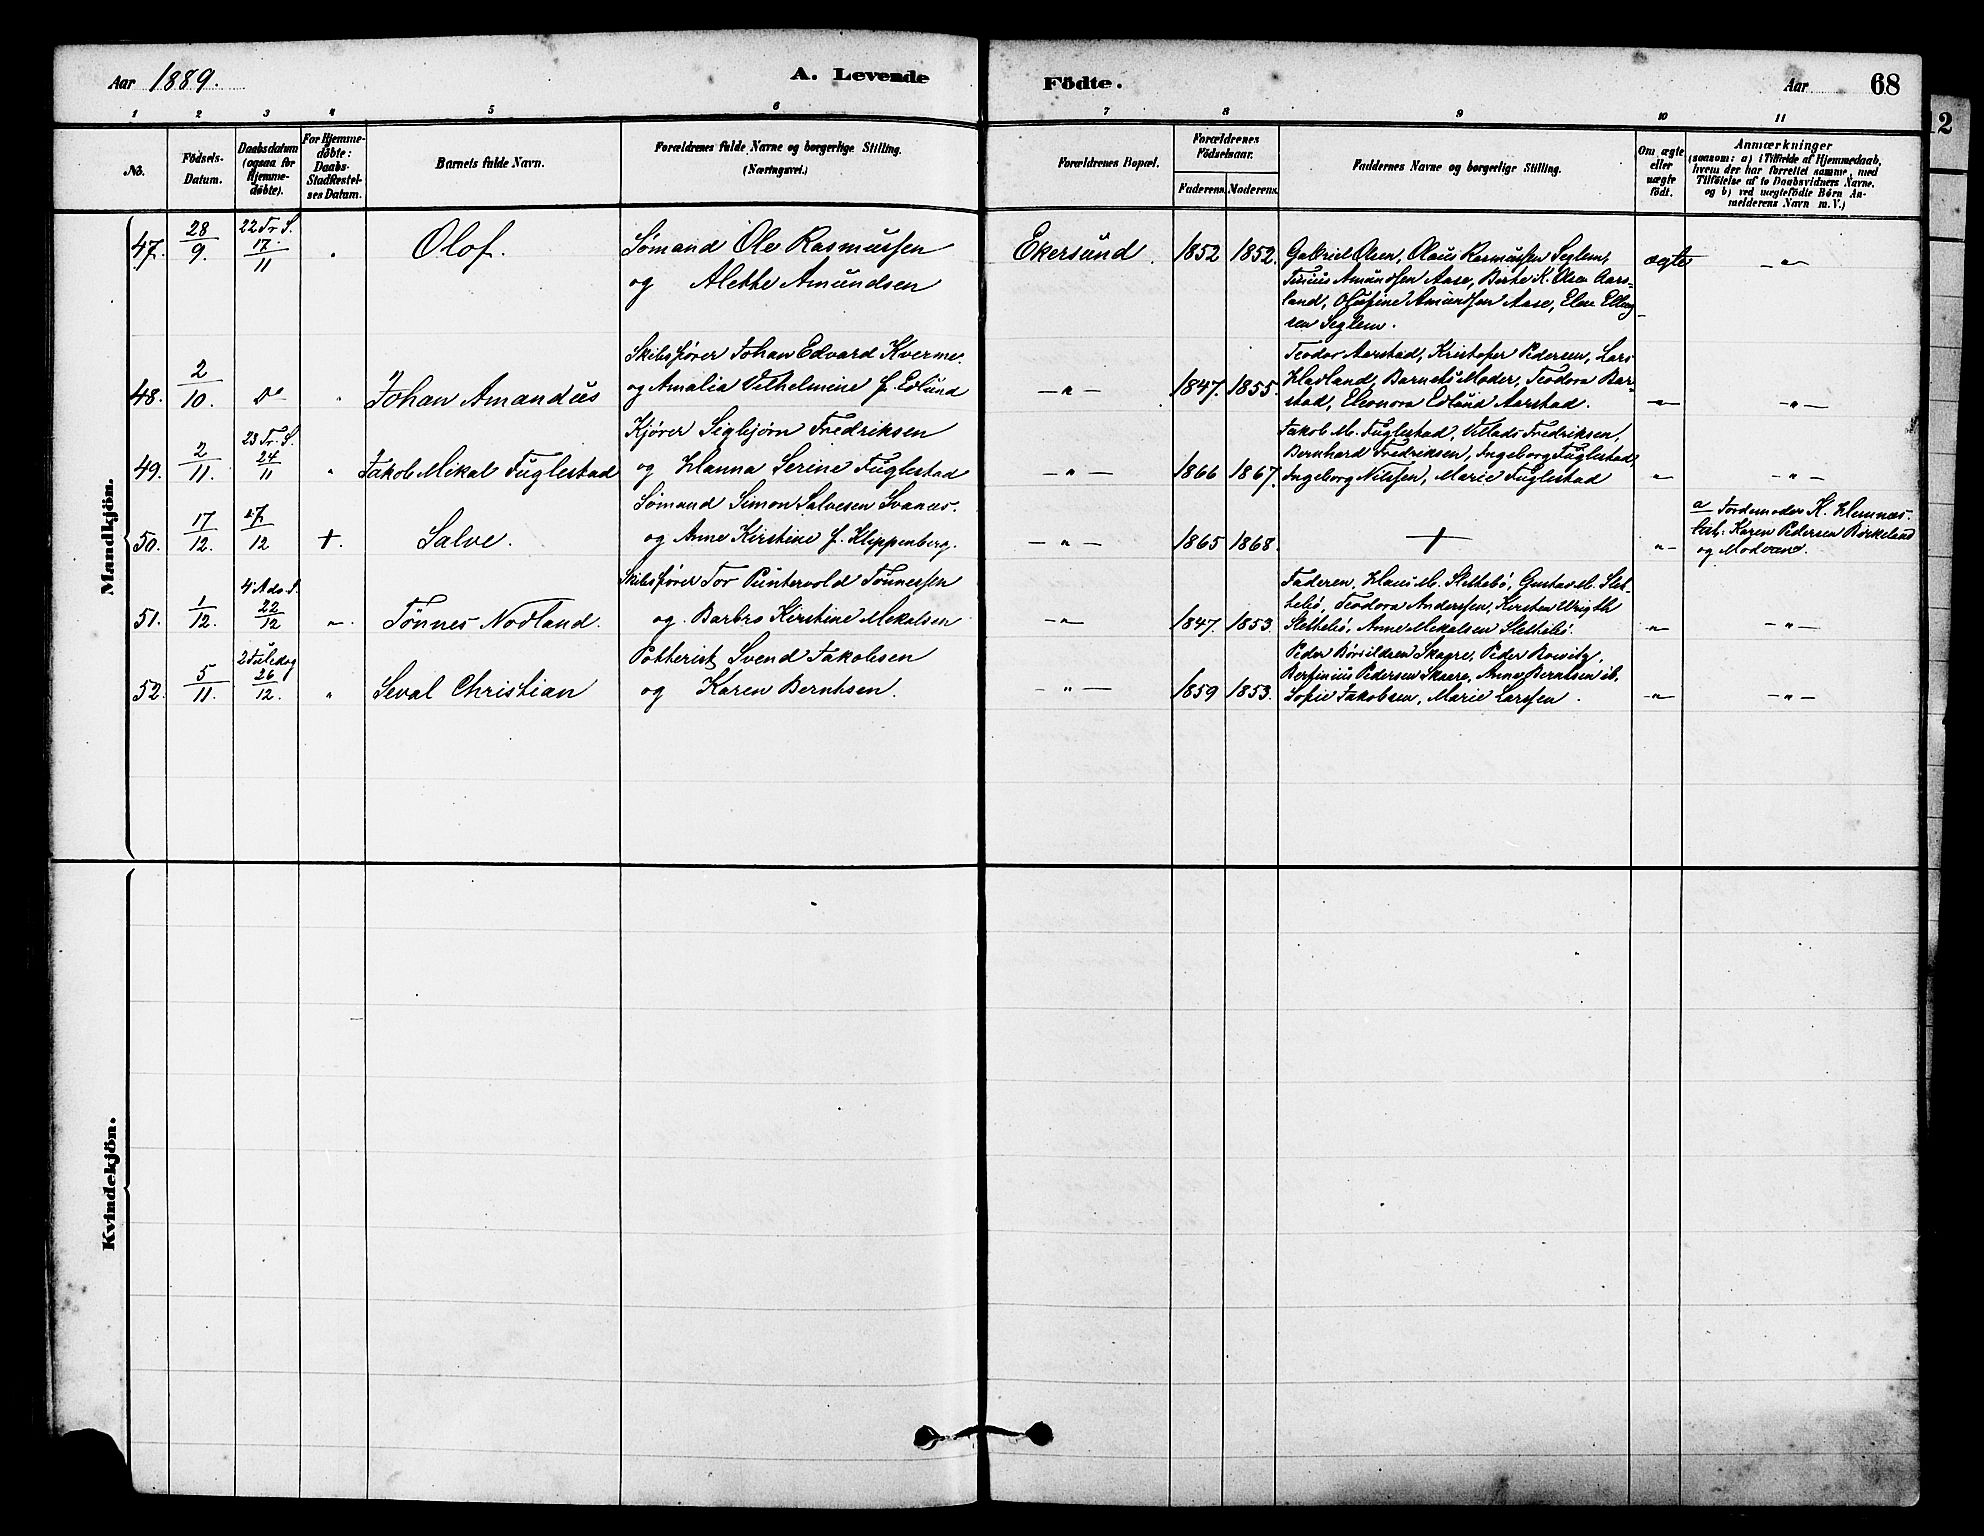 Aar 1889.
A. Levende
Födte.
Aar
68
12
1 2 3 4 5 6 7 8 9 10 11
No.
Födsels-
Datum.
Daabsdatum
(ogsaa for
Hjemme-
døbte).
For Hjemme-
døbte:
Daabs-
Stadfæstel-
ses Datum.
Barnets fulde Navn.
Forældrenes fulde Navne og borgerlige Stilling.
(Næringsvei.)
Forældrenes Bopæl.
Forældrenes
Födselsaar.
Faderens. Moderens.
Faddernes Navne og borgerlige Stilling.
Om ægte
eller
uægte
födt.
Anmærkninger
(saasom: a) i Tilfælde af Hjemmedaab,
hvem der har forrettet samme, med
Tilföielse af to Daabsvidners Navne,
og b) ved uægtefödte Børn An-
melderens Navn m. V.)
Mandkjön.
47. 28/9. 22 Tr. S. 17/11 " Olof.
Sømand Ole Rasmussen
og Alette Amundsen
Ekersund. 1852 1852.
Gabriel Olsen, Olaus Rasmussen Seglem,
Tinius Amundsen Aase, Birte K. Olsen Aars-
land, Olufine Amundsen Aase, Elen Elling-
sen Seglem.
ægte —"—
48. 2/10. Do " Johan Amandus
Skibsfører Johan Edvard Kverme.
og Amalia Vilhelmine f. Edlund
—"— 1847. 1855.
Teodor Aarstad, Kristofer Pedersen, Lars
Hadland, Barnets Moder, Teodora Aar-
stad, Eleonora Edlund Aarstad.
—"— —"—
49. 2/11. 23 Tr. S. 24/11 " Jakob Mikal Fuglestad
Kjører Sigbjørn Fredriksen
og Hanna Serine Fuglestad
—"— 1866 1867.
Jakob M. Fuglestad, Villads Fredriksen,
Bernhard Fredriksen, Ingeborg Fuglestad,
Ingeborg Nilssen, Marie Fuglestad
—"— —"—
50. 17/12. 17/12 +. Salve.
Sømand Simon Salvesen Svanes.
og Anne Kirstine f. Klippenberg.
—"— 1865 1868.
+
"—
a Jordemoder K. Hemnes.
Test: Karen Pedersen Birkeland
og Moderen.
51. 1/12. 4 Adv. S. 22/12 " Tønnes Nodland.
Skibsfører Tor Puntervold Tønnessen
og Barbro Kirstine Mekalsen
—"— 1847. 1853.
Faderen, Hans M. Slettebø, Gustav M. Slet-
tebø, Teodora Anderssen, Kirsten Wrigth
Slettebø, Anne Mekalsen Slettebø.
"— —"—
52. 5/11. 2 Juledag 26/12. " Seval Christian
Potterist Svend Jakobsen
og Karen Berntsen.
—"— 1859 1853.
Peder Børildsen Skaare, Peder Bowitz,
Bertinius Pedersen Skaare, Anne Berntsen ib.
Sofie Jakobsen, Marie Larssen.
"— —"—
Kvindekjön.